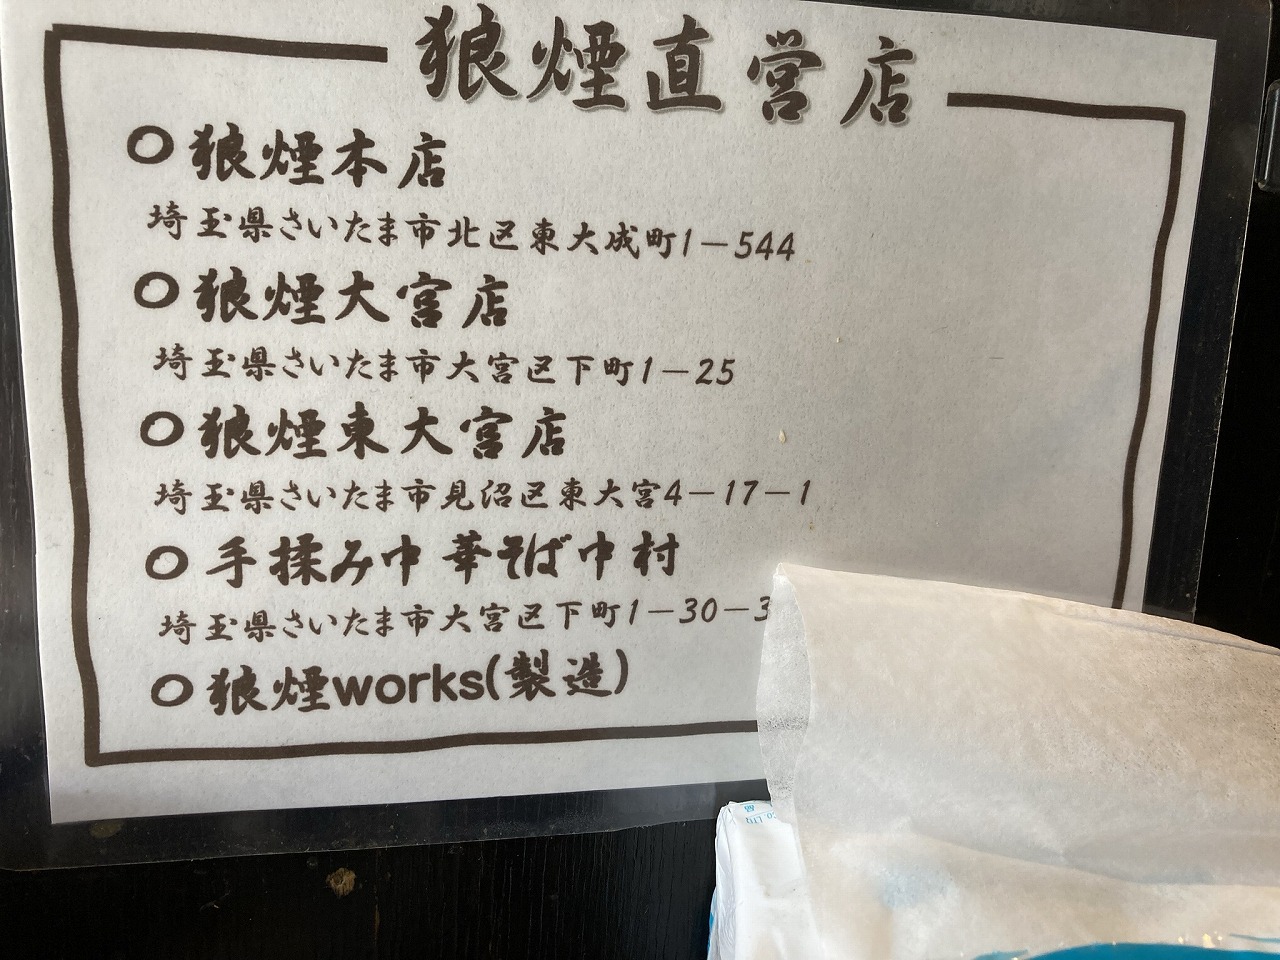 狼煙直営店
○狼煙本店
埼玉県さいたま市北区東大成町1-544
○狼煙大宮店
埼玉県さいたま市大宮区下町1-25
○狼煙東大宮店
埼玉県さいたま市見沼区東大宮4-17-1
○手揉み中華そば中村
埼玉県さいたま市大宮区下町1-30-3
○狼煙works(製造)
CO.LTD